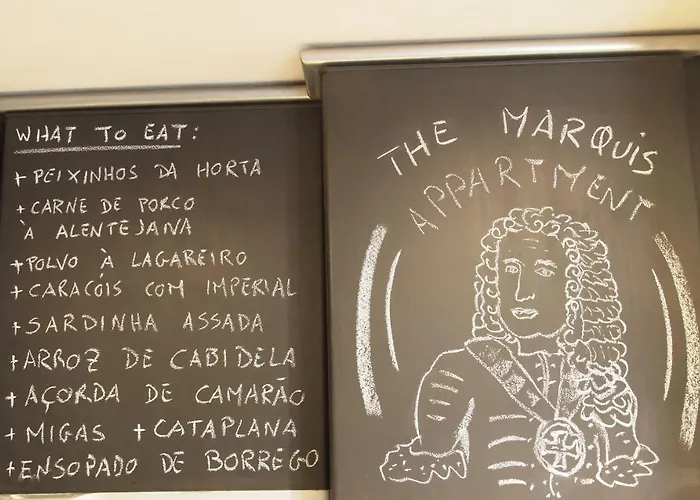 WHAT TO EAT:
+ PEIXINHOS DA HORTA
+ CARNE DE PORCO
À ALENTEJANA
+ POLVO À LAGAREIRO
+ CARACÓIS COM IMPERIAL
+ SARDINHA ASSADA
+ ARROZ DE CABIDELA
+ AÇORDA DE CAMARÃO
+ MIGAS + CATAPLANA
+ ENSOPADO DE BORREGO
THE MARQUIS
APPARTMENT